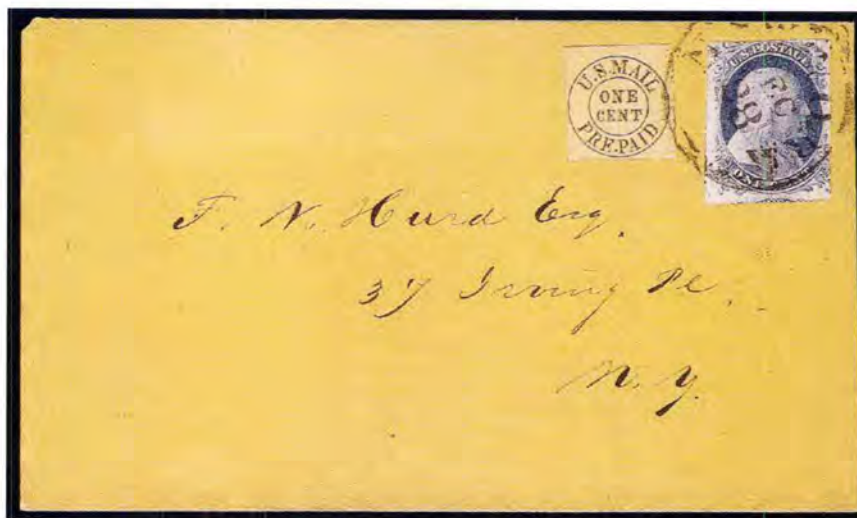 U.S. MAIL
ONE
CENT
PRE-PAID
U.S. POSTAGE
ONE
F. N. Hurd Esq.
37 Irving Pl.
N. Y.